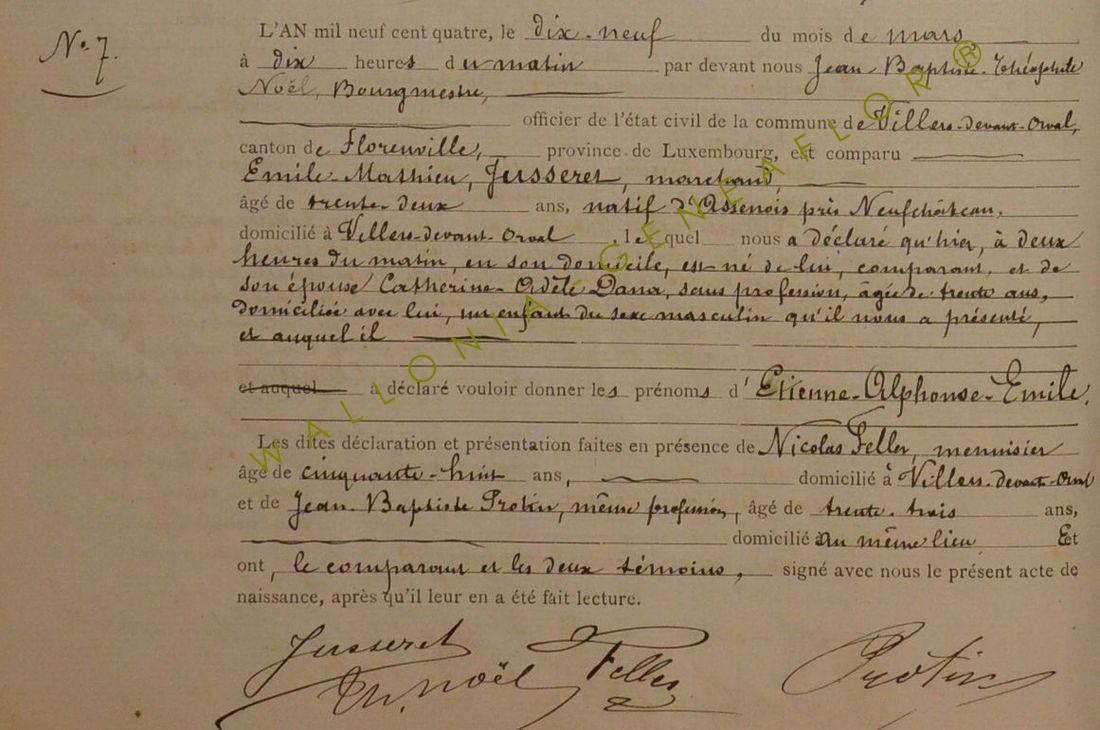 No 7.
L'AN mil neuf cent quatre, le dix-neuf du mois de mars
à dix heures du matin par devant nous Jean-Baptiste-Théophile
Noël, Bourgmestre,
officier de l'état civil de la commune de Villers-devant-Orval,
canton de Florenville, province de Luxembourg, est comparu
Emile-Mathieu, Jusseret, marchand,
âgé de trente-deux ans, natif d'Assenois près Neufchâteau,
domicilié à Villers-devant-Orval, lequel nous a déclaré qu'hier, à deux
heures du matin, en son domicile, est né de lui, comparant, et de
son épouse Catherine-Adèle Dana, sans profession, âgée de trente ans,
domiciliée avec lui, un enfant du sexe masculin qu'il nous a présenté,
et auquel il
et auquel a déclaré vouloir donner les prénoms d'Etienne-Alphonse-Emile.
Les dites déclaration et présentation faites en présence de Nicolas Feller, menuisier
âgé de cinquante-huit ans, domicilié à Villers-devant-Orval
et de Jean-Baptiste Protin, même profession, âgé de trente-trois ans,
domicilié au même lieu Et
ont, le comparant et les deux témoins, signé avec nous le présent acte de
naissance, après qu'il leur en a été fait lecture.
Jusseret Feller Protin
Th. Noël
WALLONIA-GENEAFLOR®